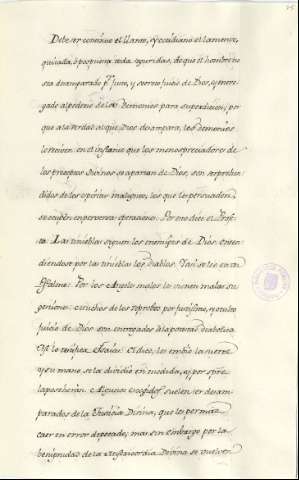 Debe ser continuo el llanto, y quotidiano el lamento,
quitada, ò pospuesta toda seguridad, de que el hombre no
sea desamparado pr. justo, y secreto juicio de Dios, y entre-
gado al poder de los Demonios para su perdicion; por
que a la verdad al que Dios desampara, los demonios
lo reciven en el instante que los menospreciadores de
los preceptos Divinos se apartan de Dios, son
de los espiritus malignos, los que les persuaden
se ocupen en perversas operaciones. Por eso dice el Profe-
ta: Las tinieblas siguen los enemigos de Dios. enten-
diendose por las tinieblas los diablos. Tambien se lee en un
Psalmo: Por los Angeles malos les vienen malas su-
gestiones: muchos de los reprobos por justisimo, y oculto
juicio de Dios son entregados à la potestad diabolica
Asi lo testifica Isaias: El dice, les embio la suerte
y su mano se la dividio en medida, y por siempre
la poseheràn. Algunos escogidos suelen ser desam-
parados de la Justicia Divina, que les permite
caer en error de pecado; mas sin embargo por la
benignidad de la misericordia Divina se vuelven